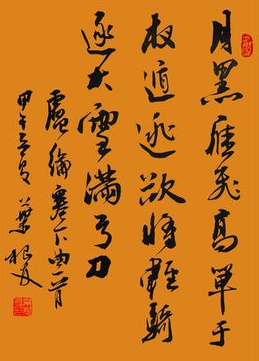 月黑雁飛高單于
夜遁逃欲將輕騎
逐大雪滿弓刀
盧綸塞下曲一首
甲午 葉根友